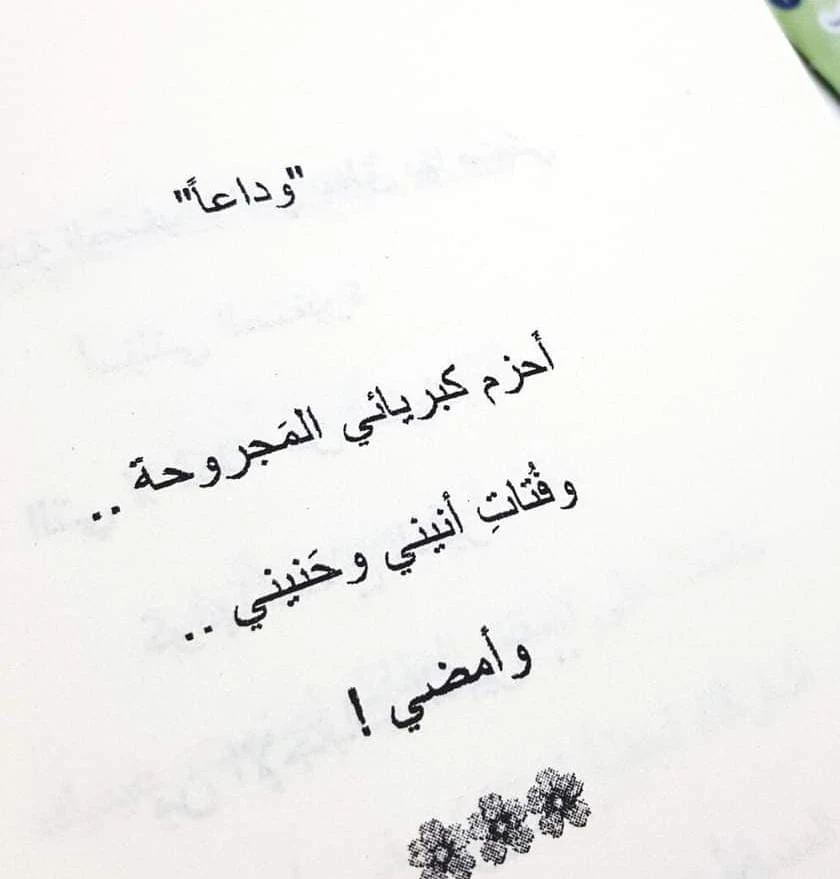 "وداعاً"
أحزم كبريائي المَجروحة ..
وفُتاتِ أنيني وحَنيني ..
وأمضي !